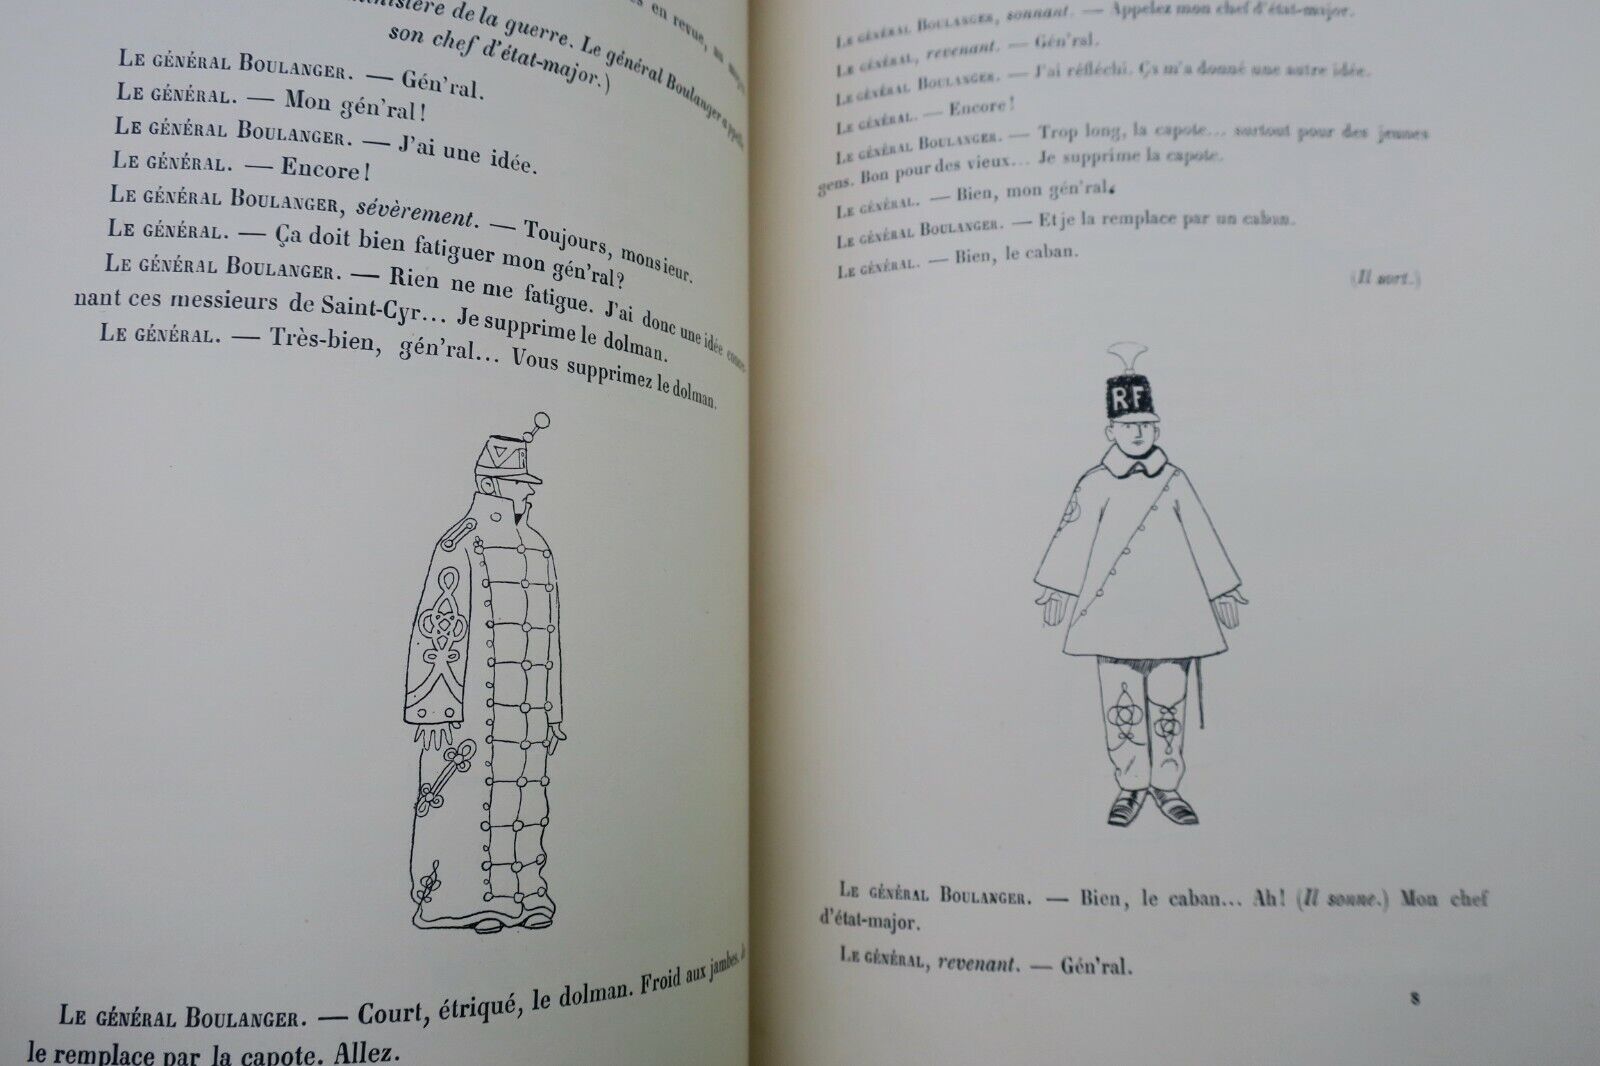 en revue, au
ministère de la guerre. Le général Boulanger appelle
son chef d'état-major.)
LE GÉNÉRAL BOULANGER. — Gén'ral.
LE GÉNÉRAL. — Mon gén'ral!
LE GÉNÉRAL BOULANGER. — J'ai une idée.
LE GÉNÉRAL. — Encore!
LE GÉNÉRAL BOULANGER, sévèrement. — Toujours, monsieur.
LE GÉNÉRAL. — Ça doit bien fatiguer mon gén'ral?
LE GÉNÉRAL BOULANGER. — Rien ne me fatigue. J'ai donc une idée concer-
nant ces messieurs de Saint-Cyr... Je supprime le dolman.
LE GÉNÉRAL. — Très-bien, gén'ral... Vous supprimez le dolman.
LE GÉNÉRAL BOULANGER. — Court, étriqué, le dolman. Froid aux jambes. Je
le remplace par la capote. Allez.
LE GÉNÉRAL BOULANGER, sonnant. — Appelez mon chef d'état-major.
LE GÉNÉRAL, revenant. — Gén'ral.
LE GÉNÉRAL BOULANGER. — J'ai réfléchi. Ça m'a donné une autre idée.
LE GÉNÉRAL. — Encore!
LE GÉNÉRAL BOULANGER. — Trop long, la capote... surtout pour des jeunes
gens. Bon pour des vieux... Je supprime la capote.
LE GÉNÉRAL. — Bien, mon gén'ral.
LE GÉNÉRAL BOULANGER. — Et je la remplace par un caban.
LE GÉNÉRAL. — Bien, le caban.
(Il sort.)
RF
LE GÉNÉRAL BOULANGER. — Bien, le caban... Ah! (Il sonne.) Mon chef
d'état-major.
LE GÉNÉRAL, revenant. — Gén'ral.
8